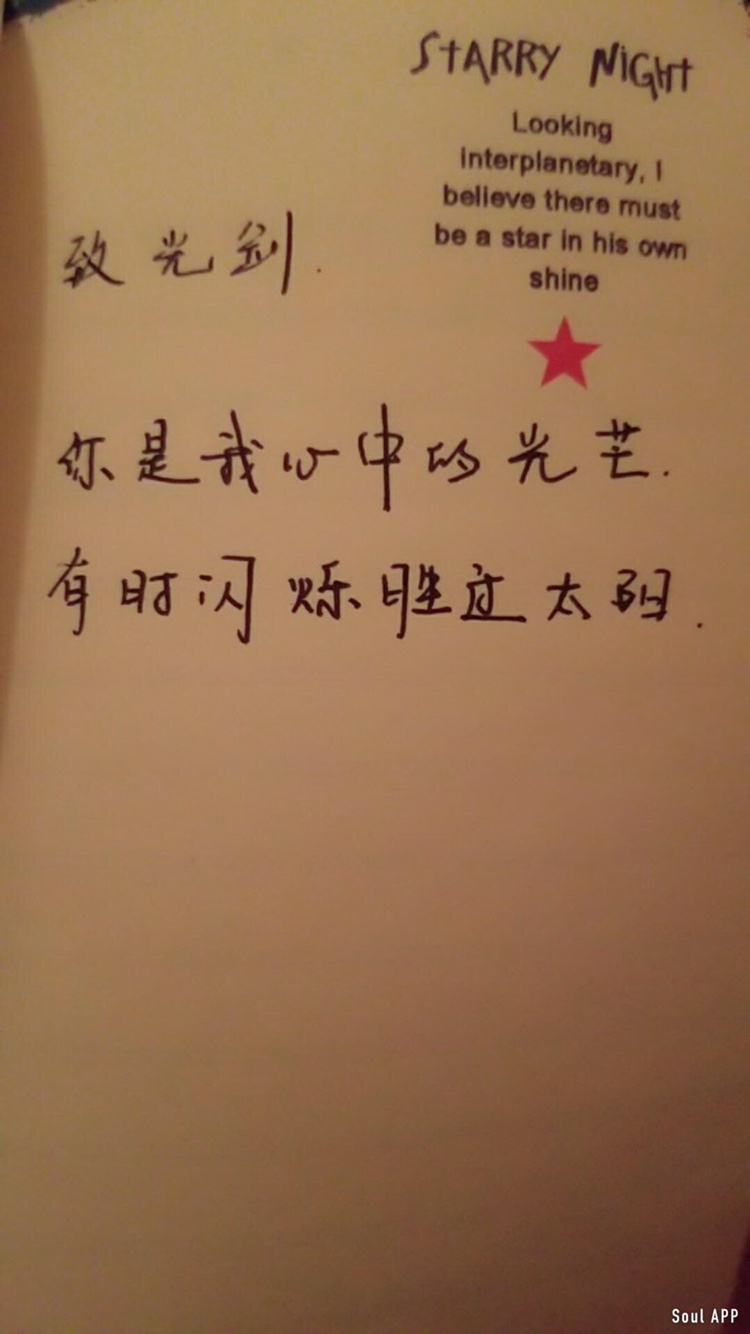 STARRY NIGHT
Looking
interplanetary, I
believe there must
be a star in his own
shine
致光剑.
你是我心中的光芒.
有时闪烁胜过太阳.
Soul APP